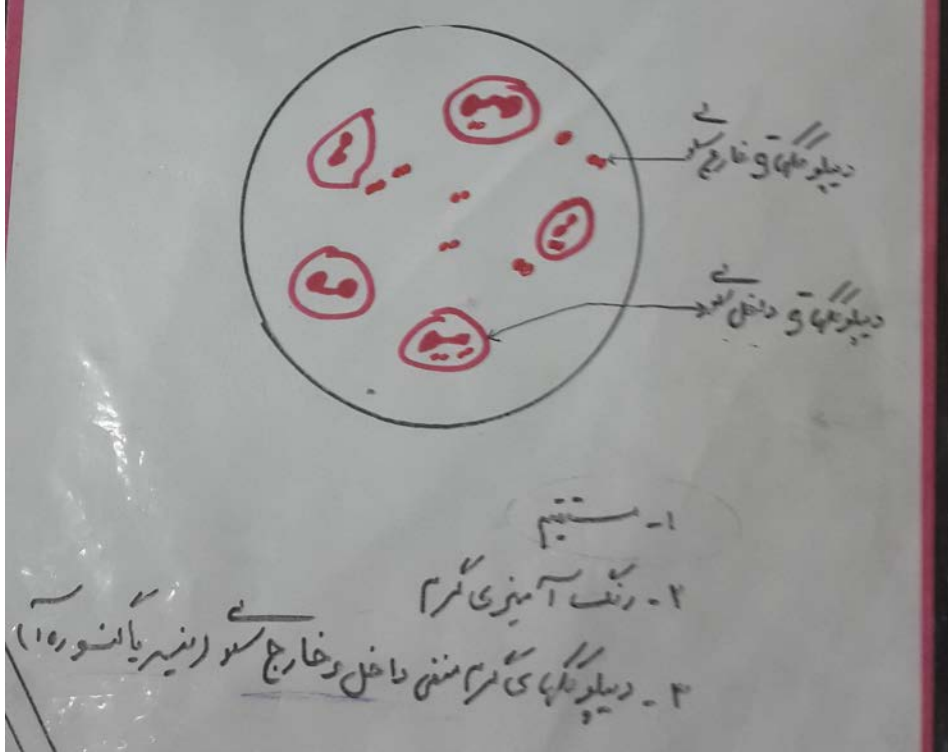 دیپلوکوکهای خارج سلولی
دیپلوکوکهای داخل سلولی
۱- مستقیم
۲- رنگ آمیزی گرم
۳- دیپلوکوکهای گرم منفی داخل و خارج سلولی (نیسریا گنوره آ)